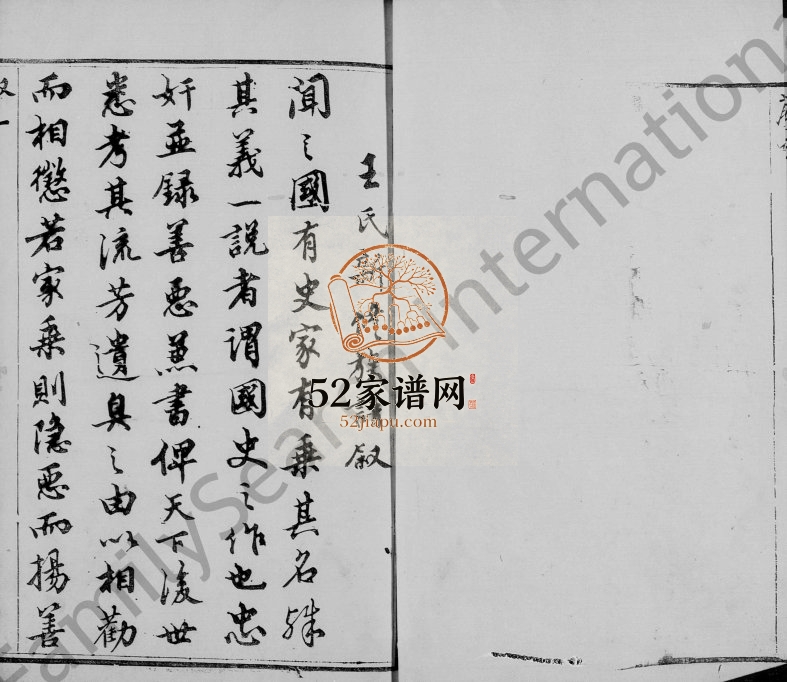 王氏族叙
聞之國有史家有乗其名殊
其義一説者謂國史之作也忠
奸並録善惡兼書俾天下後世
悉考其流芳遺臭之由以相勸
而相懲若家乗則隐惡而揚善
52家谱网
52jiapu.com
FamilySearch International